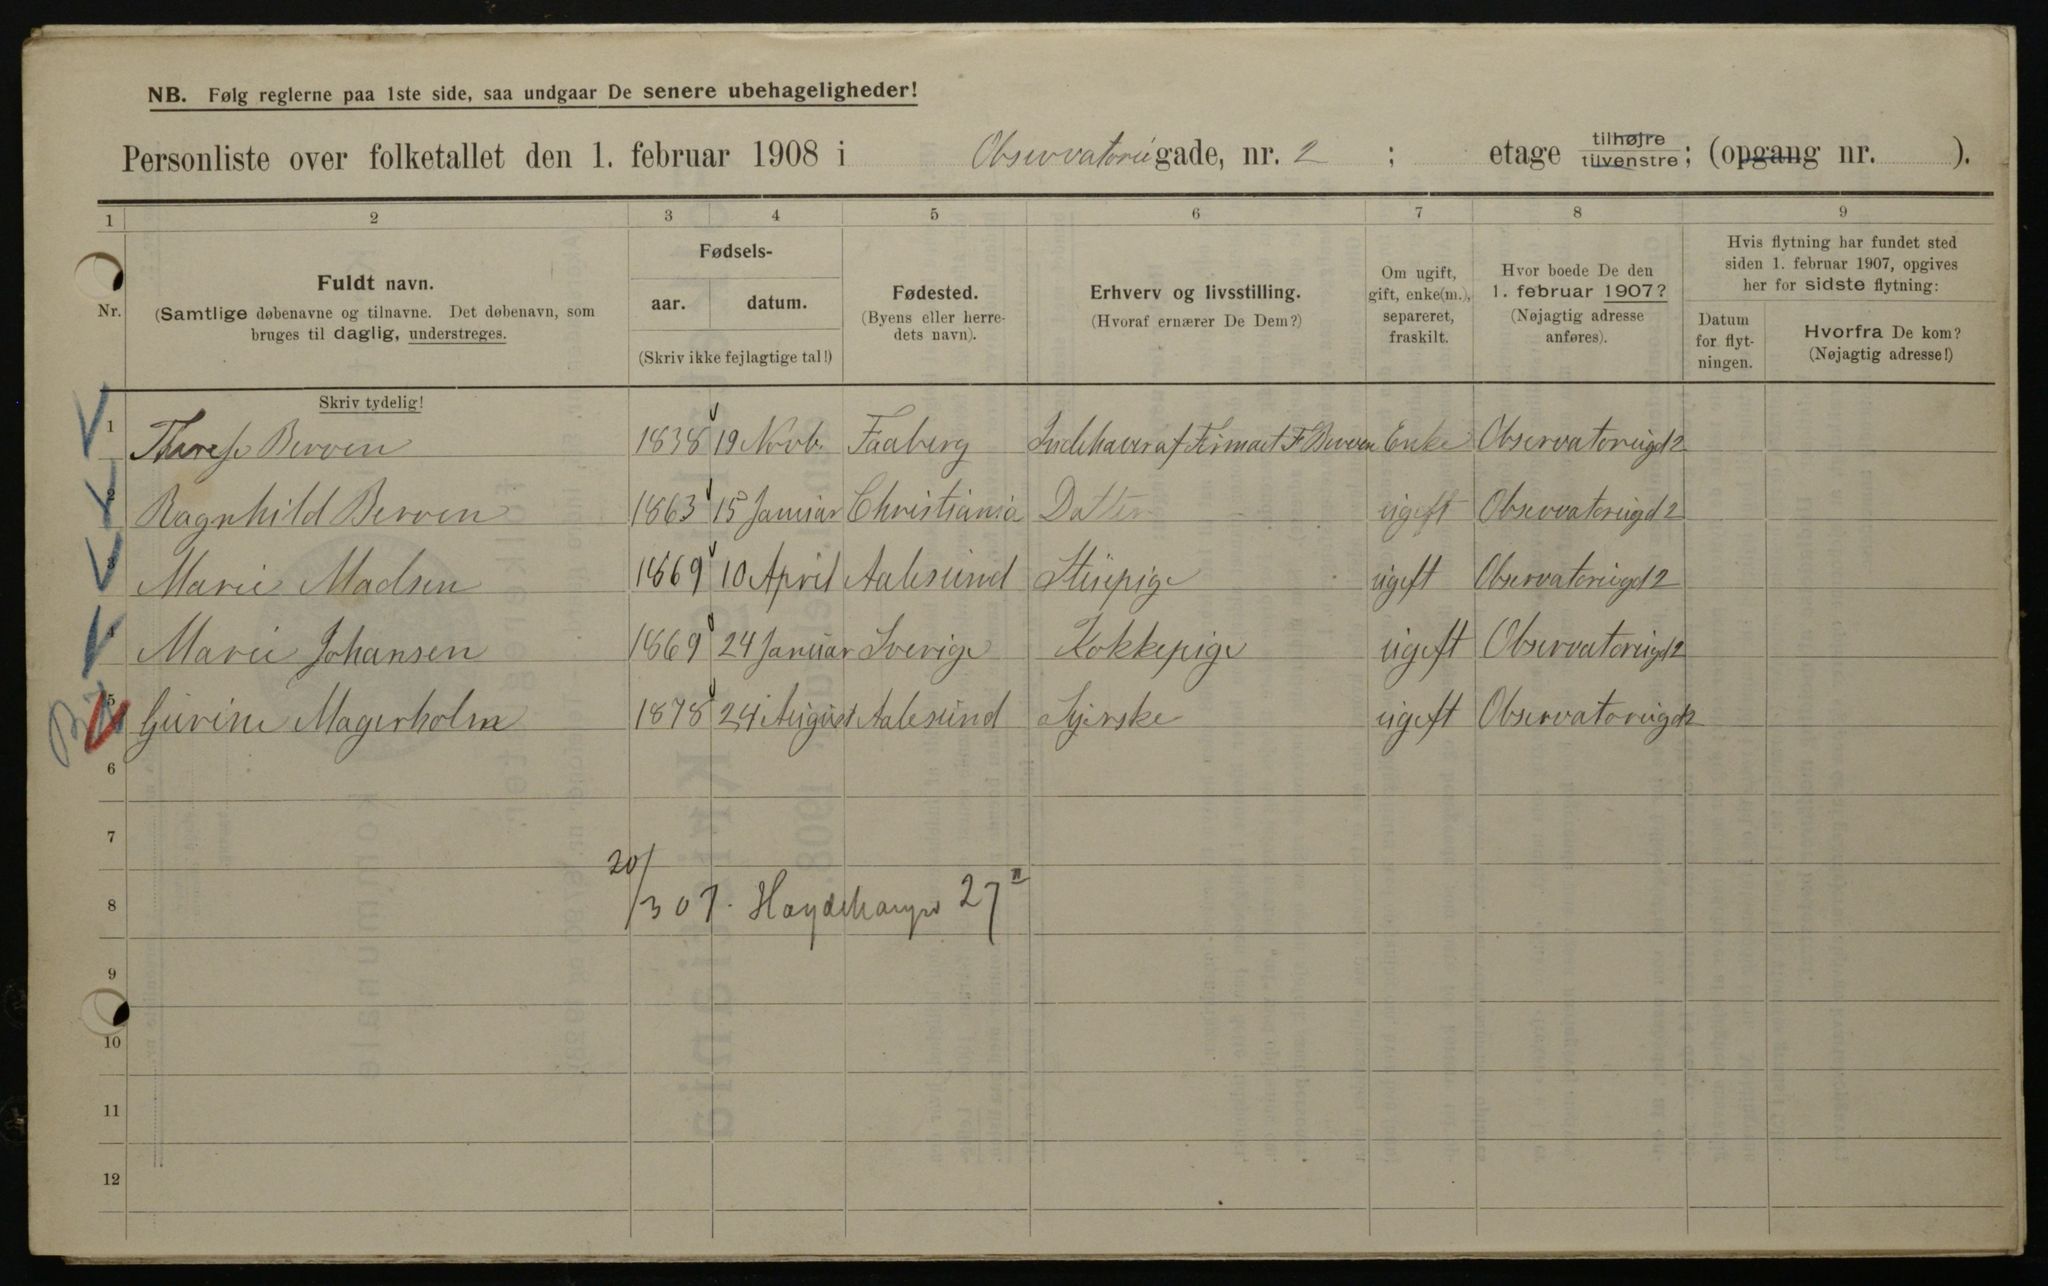 NB. Følg reglerne paa 1ste side, saa undgaar De senere ubehageligheder!
Personliste over folketallet den 1. februar 1908 i Observatoriegade, nr. 2 ; etage tilhøjre tilvenstre; (opgang nr. ).
1 2 3 4 5 6 7 8 9
Nr.
Fuldt navn.
(Samtlige døbenavne og tilnavne. Det døbenavn, som
bruges til daglig, understreges.
Skriv tydelig!
Fødsels-
aar. datum.
(Skriv ikke fejlagtige tal!)
Fødested.
(Byens eller herre-
dets navn).
Erhverv og livsstilling.
(Hvoraf ernærer De Dem?)
Om ugift,
gift, enke(m.),
separeret,
fraskilt.
Hvor boede De den
1. februar 1907?
(Nøjagtig adresse
anføres).
Hvis flytning har fundet sted
siden 1. februar 1907, opgives
her for sidste flytning:
Datum
for flyt-
ningen.
Hvorfra De kom?
(Nøjagtig adresse!)
1 Therese Berven 1838 19 Novb. Faaberg Indehaver af Firmaet F Berven Enke Observatoriegd 2
2 Ragnhild Berven 1863 15 Januar Christiania Datter ugift Observatoriegd 2
3 Marie Madsen 1869 10 April Aalesund Stuepige ugift Observatoriegd 2
4 Marie Johansen 1869 24 Januar Sverige Kokkepige ugift Observatoriegd 2
5 Gurine Magerholm 1878 24 August Aalesund Syerske ugift Observatoriegd 2
6
7
8 20/3 07. 27 II
9
10
11
12